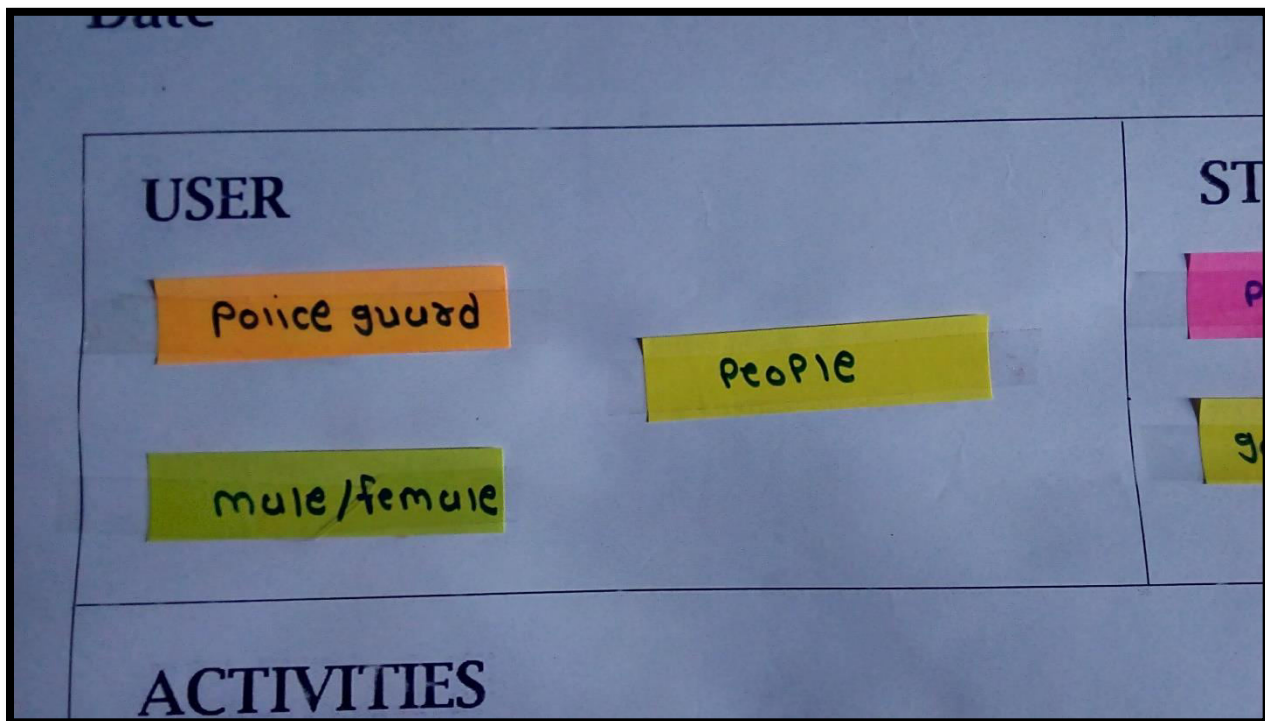 Date
USER
ST
Police guard
P
People
go
male/female
ACTIVITIES